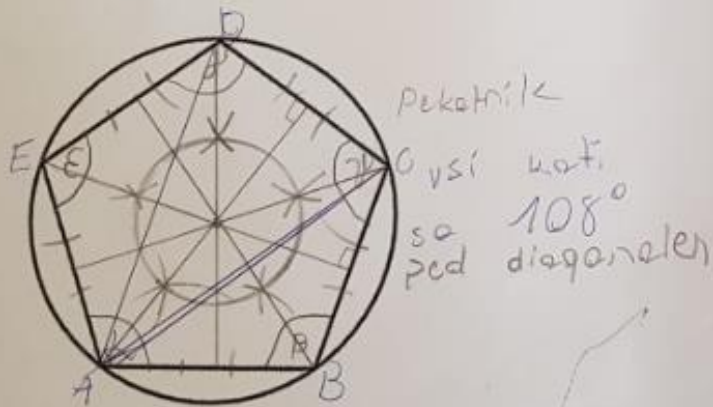 D
E
ε
δ
C
A
B
β
Peketnik
vsi koti
so 108°
ped diagonalen